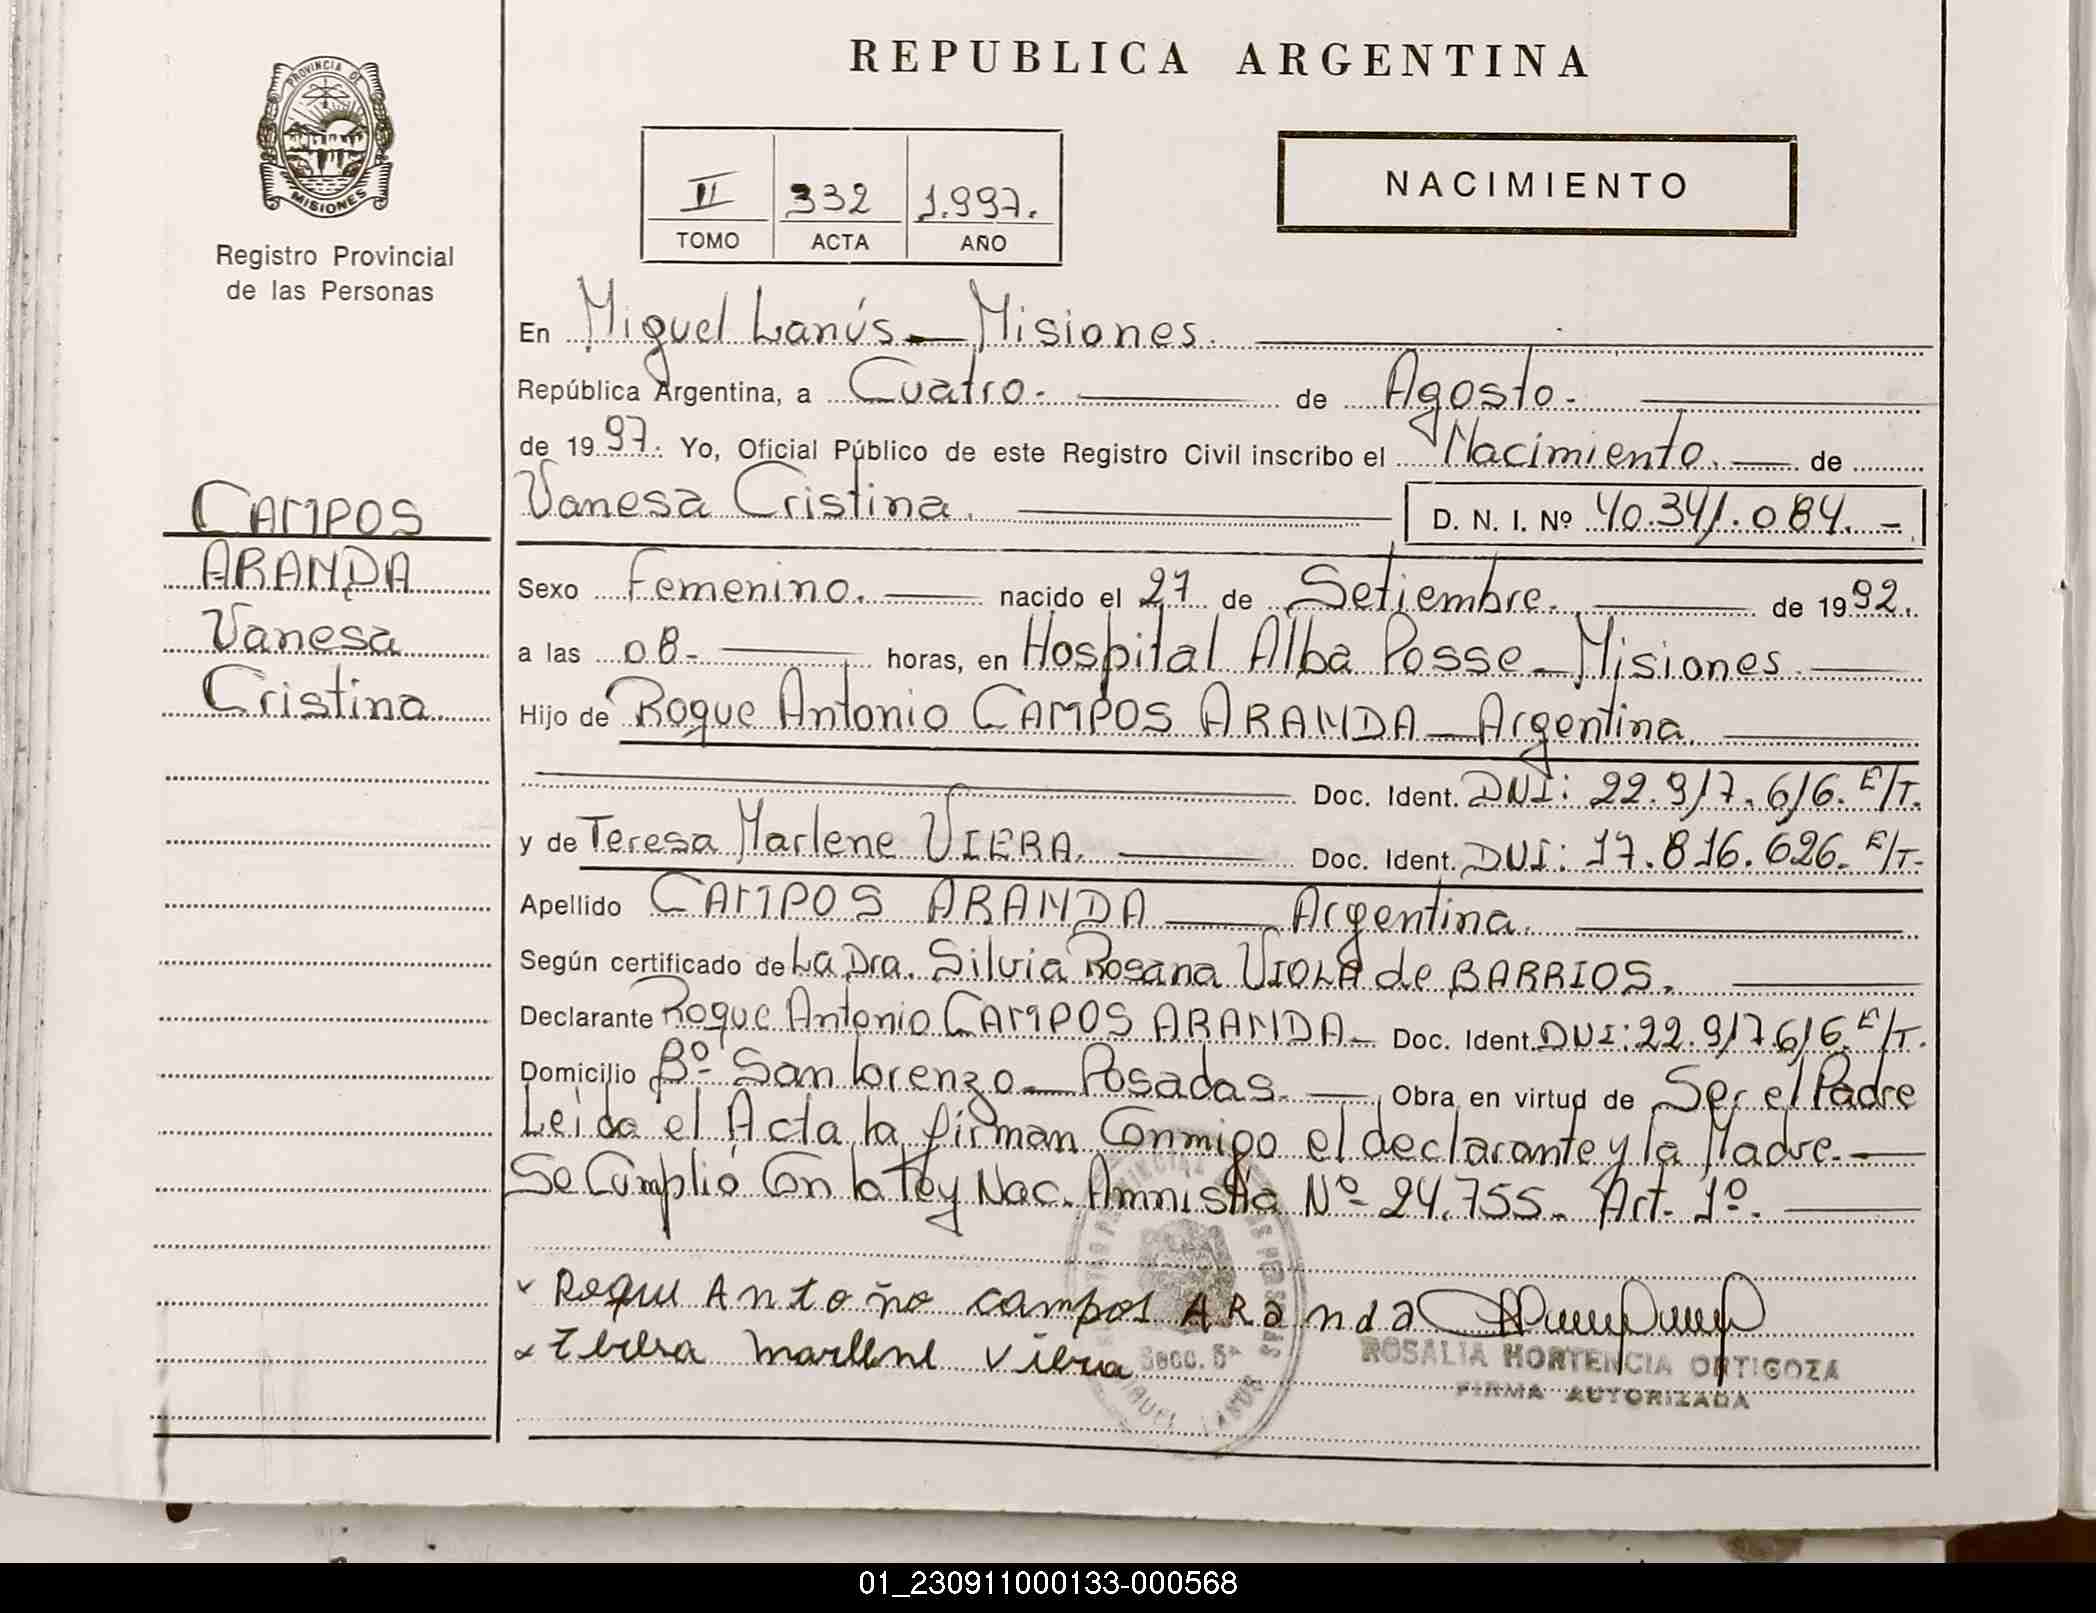 REPUBLICA ARGENTINA
PROVINCIA DE
MISIONES
Registro Provincial
de las Personas
II 332 1.997.
TOMO ACTA AÑO
NACIMIENTO
CAMPOS
ARANDA
Vanesa
Cristina
En Miguel Lanús - Misiones.
República Argentina, a Cuatro. de Agosto.
de 1997. Yo, Oficial Público de este Registro Civil inscribo el Nacimiento. de
Vanesa Cristina. D. N. I. Nº 40.341.084. -
Sexo Femenino. nacido el 27 de Setiembre. de 1992.
a las 08- horas, en Hospital Alba Posse - Misiones
Hijo de Roque Antonio CAMPOS ARANDA - Argentina.
Doc. Ident. DNI: 22.917.616. E/T.
y de Teresa Marlene VIERA. Doc. Ident. DNI: 17.816.626. E/T.
Apellido CAMPOS ARANDA - Argentina.
Según certificado de La Dra. Silvia Rosana VIOLA de BARRIOS.
Declarante Roque Antonio CAMPOS ARANDA - Doc. Ident. DNI: 22.917616. E/T.
Domicilio Bº San Lorenzo - Posadas. Obra en virtud de Ser el Padre
Leida el Acta la firman Conmigo el declarante y la Madre.
Se Cumplió Con la Ley Nac. Amnistía Nº 24.755. Art. 1º.
Roque Antonio campos ARanda
teresa marlene viera
Secc. 5ª
MIGUEL LANUS
ROSALIA HORTENCIA ORTIGOZA
FIRMA AUTORIZADA
01_230911000133-000568